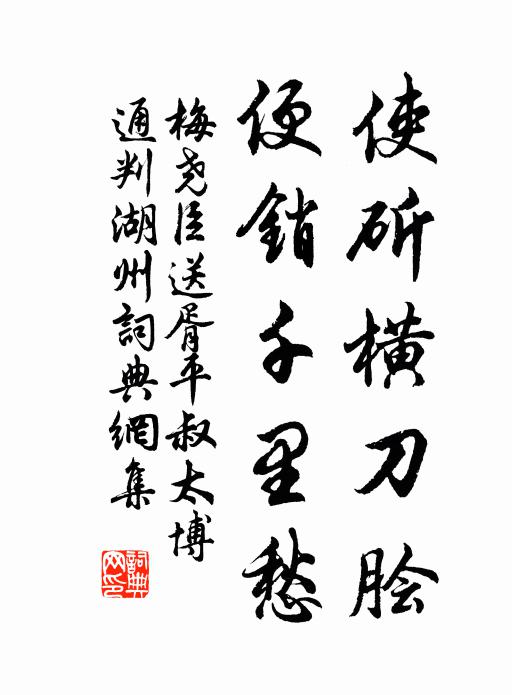 使斫横刀脍
便銷千里愁
梅尧臣送胥平叔太博
通判湖州詞典網集
詞典
网印